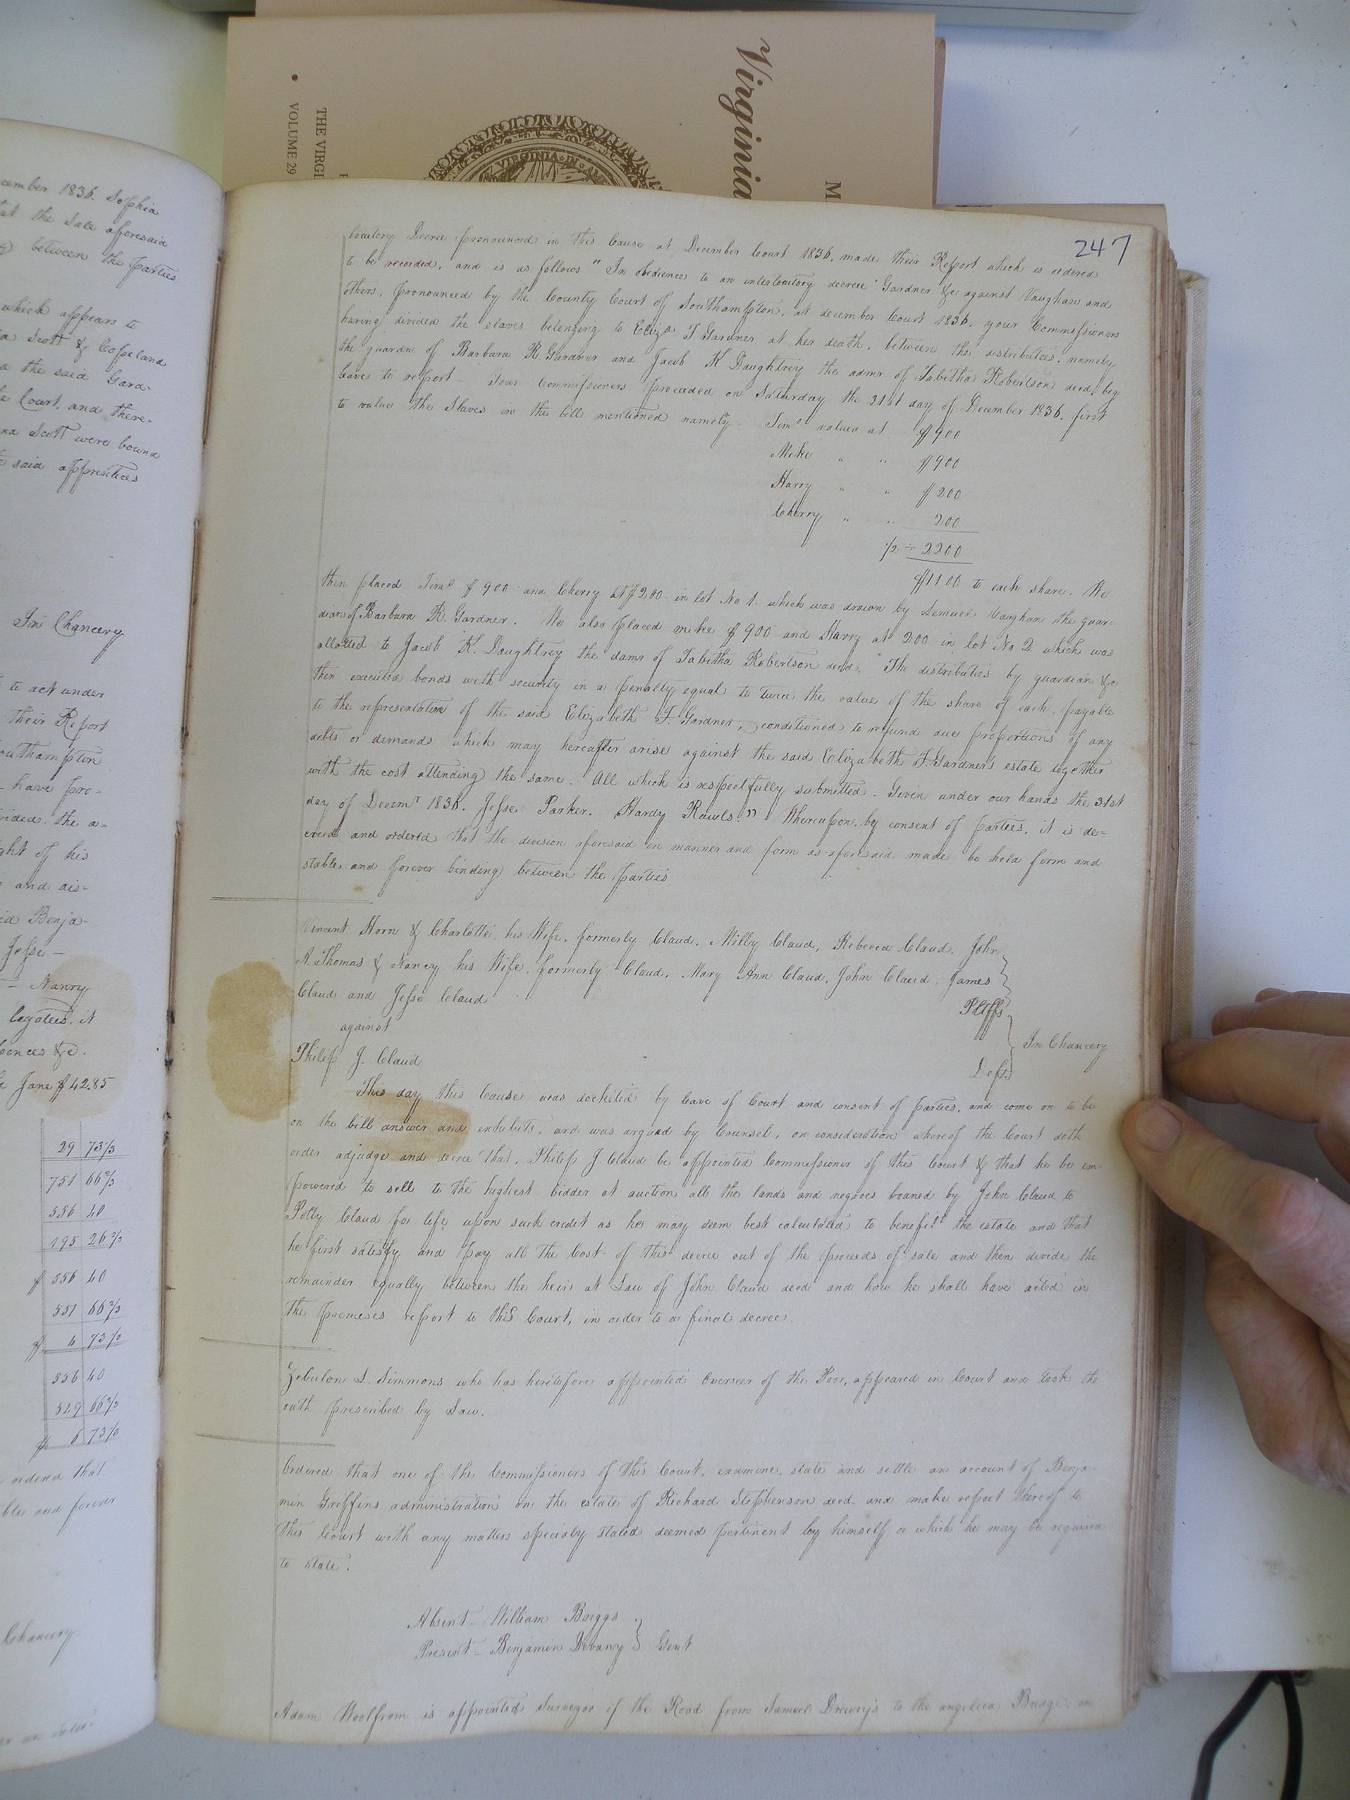 Virginia
M
THE VIRGI
VOLUME 29
VIRGINIA
247
cember 1836. Sophia
the Sale aforesaid
between the parties
which appears to
Scott & Copeland
the said Gard-
Court, and there-
Scott were bound
said apprentices
In Chancery
to act under
their Report
outhampton
have pro-
vided the a-
ght of his
and ais-
Benja-
Jesse -
- Nancy
legatees, it
&c.
Jane $42.85
29 73⅓
751 66⅔
556 40
195 26⅔
$ 556 40
551 66⅔
$ 4 73⅓
556 40
549 66⅔
$ 6 73⅓
ordered that
ble and forever
Chancery
locutory Decree pronounced in this Cause at December Court 1836, made their Report which is ordered
to be recorded, and is as follows "In obedience to an interlocutory decree Gardner &c against Vaughan and
others, pronounced by the County Court of Southampton, at december Court 1836, your Commissioners
having divided the slaves belonging to Eliza T Gardner at her death, between the distributees, namely
the guardn of Barbara R. Gardner and Jacob K Daughtrey the admr of Tabitha Robertson decd, beg
leave to report - Your Commissioners proceeded on Saturday the 31st day of December 1836, first
to value the Slaves in the bill mentioned namely Tim valued at $900
Mike " " $900
Harry " " $200
Cherry " " 200
½ ÷ 2200
$1100 to each share. We
then placed $900 and Cherry at $200 in lot No 1. which was drawn by Lemuel Vaughan the guar-
dian of Barbara R. Gardner. We also placed mike $900 and Harry at 200 in lot No 2 which was
allotted to Jacob K. Daughtrey the damr of Tabitha Robertson decd. "The distributees by guardian &c
then executed bonds with security in a penalty equal to twice the value of the share of each, payable
to the representative of the said Elizabeth T. Gardner, conditioned to refund due proportions of any
debts or demands which may hereafter arise against the said Elizabeth T. Gardner's estate together
with the cost attending the same. All which is respectfully submitted. Given under our hands the 31st
day of Decemr 1836. Jesse Parker. Hardy Rawls." Whereupon, by consent of parties, it is de-
creed and ordered that the division aforesaid in manner and form as aforesaid made be held form and
stable and forever binding between the parties
Vincent Horn & Charlotte his Wife, formerly Claud, Milly Claud, Rebecca Claud, John
A. Thomas & Nancy his Wife, formerly Claud, Mary Ann Claud, John Claud, James
Claud and Jesse Claud Pltffs
against } In Chancery
Philip J. Claud Deft.
This day this Cause was docketed by leave of Court and consent of parties, and come on to be
on the bill answer and exhibits, and was argued by Counsel, on consideration whereof the Court doth
order adjudge and decree that, Philip J Claud be appointed Commissioner of this Court & that he be em
powered to sell to the highest bidder at auction all the lands and negroes loaned by John Claud to
Polly Claud for life, upon such credit as he may deem best calculated to benefit the estate and that
he first satisfy and pay all the Cost of this decree out of the proceeds of sale and then divide the
remainder equally between the heirs at Law of John Claud decd and how he shall have acted in
the premises report to this Court, in order to a final decree.
Zebulon S. Simmons who has heretofore appointed Overseer of the Poor, appeared in Court and took the
oath prescribed by Law.
Ordered that one of the Commissioners of this Court, examine, state and settle an account of Benja
min Griffins administration on the estate of Richard Stephenson decd and make report thereof to
this Court with any matters specially stated deemed pertinent by himself or which he may be required
to state.
Absent - William Briggs
Present - Benjamin Devany } Gent
Adam Woolfrom is appointed Surveyor of the Road from Samuel Drewry's to the angelica Bridge in